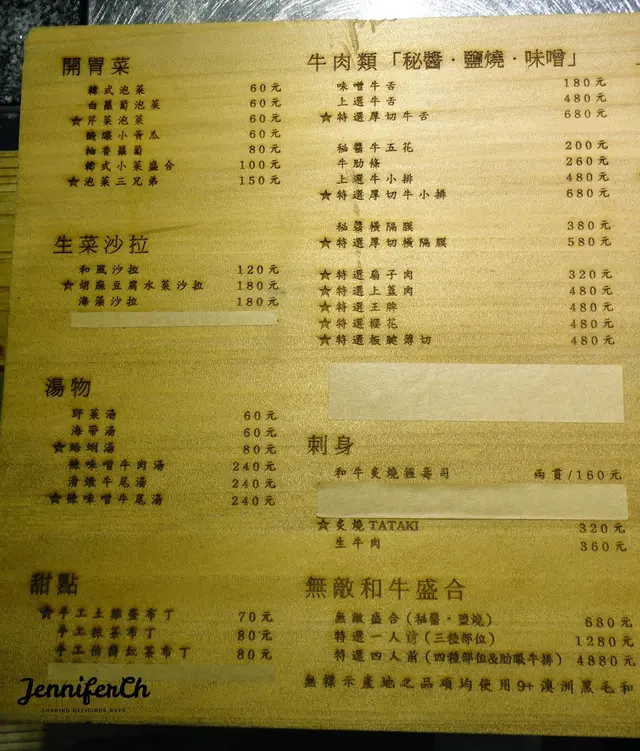 開胃菜
韓式泡菜 60元
白蘿蔔泡菜 60元
☆芹菜泡菜 60元
醃釀小黃瓜 60元
柚香蘿蔔 80元
韓式小菜盛合 100元
☆泡菜三兄弟 150元
生菜沙拉
和風沙拉 120元
☆胡麻豆腐水菜沙拉 180元
海藻沙拉 180元
湯物
野菜湯 60元
海帶湯 60元
☆蛤蜊湯 80元
辣味噌牛肉湯 240元
清燉牛尾湯 240元
☆辣味噌牛尾湯 240元
甜點
☆手工土雞蛋布丁 70元
手工抹茶布丁 80元
手工伯爵紅茶布丁 80元
牛肉類「秘醬·鹽燒·味噌」
味噌牛舌 180元
上選牛舌 480元
☆特選厚切牛舌 680元
秘醬牛五花 200元
牛肋條 260元
上選牛小排 480元
☆特選厚切牛小排 680元
秘醬橫隔膜 380元
☆特選厚切橫隔膜 580元
☆特選扇子肉 320元
☆特選上蓋肉 480元
☆特選王牌 480元
☆特選櫻花 480元
☆特選板腱薄切 480元
刺身
和牛炙燒握壽司 兩貫/160元
☆炙燒TATAKI 320元
生牛肉 360元
無敵和牛盛合
無敵盛合(秘醬·鹽燒) 680元
特選一人前(三種部位) 1280元
特選四人前(四種部位&肋眼牛排) 4880元
無標示產地之品項均使用9+澳洲黑毛和
JenniferCh
SHARING DELICIOUS DAYS